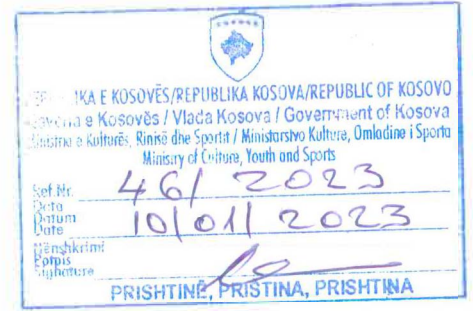 IKA E KOSOVËS/REPUBLIKA KOSOVA/REPUBLIC OF KOSOVO
e Kosovës / Vlada Kosova / Government of Kosova
e Kulturës, Rinisë dhe Sportit / Ministarstvo Kulture, Omladine i Sporta
Ministry of Culture, Youth and Sports
Ref.Nr. 46/ 2023
Data
Datum
Date 10/01/ 2023
Nënshkrimi
Potpis
Signature
PRISHTINË, PRISTINA, PRISHTINA